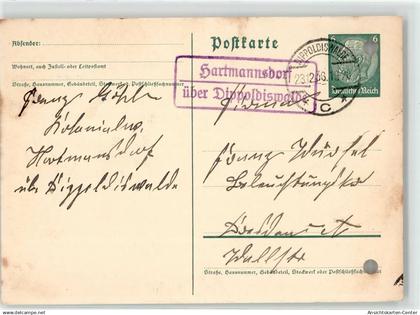 Absender:
Postkarte
Wohnort, auch Zustell- oder Leitpostamt
Straße, Hausnummer, Gebäudeteil, Stockwerk od. Postschließfachnummer
6 6
Deutsches Reich
DIPPOLDISWALDE
23.12.36.
C
Hartmannsdorf
über Dippoldiswalde
Franz
Kolonialw.
Hartmannsdorf
über Dippoldiswalde
Franz
Beleuchtungskö
Dresden A
Wallstr
Straße, Hausnummer, Gebäudeteil, Stockwerk oder Postschließfachnummer
www.ansichtskarten-center.de
Ansichtskarten-Center